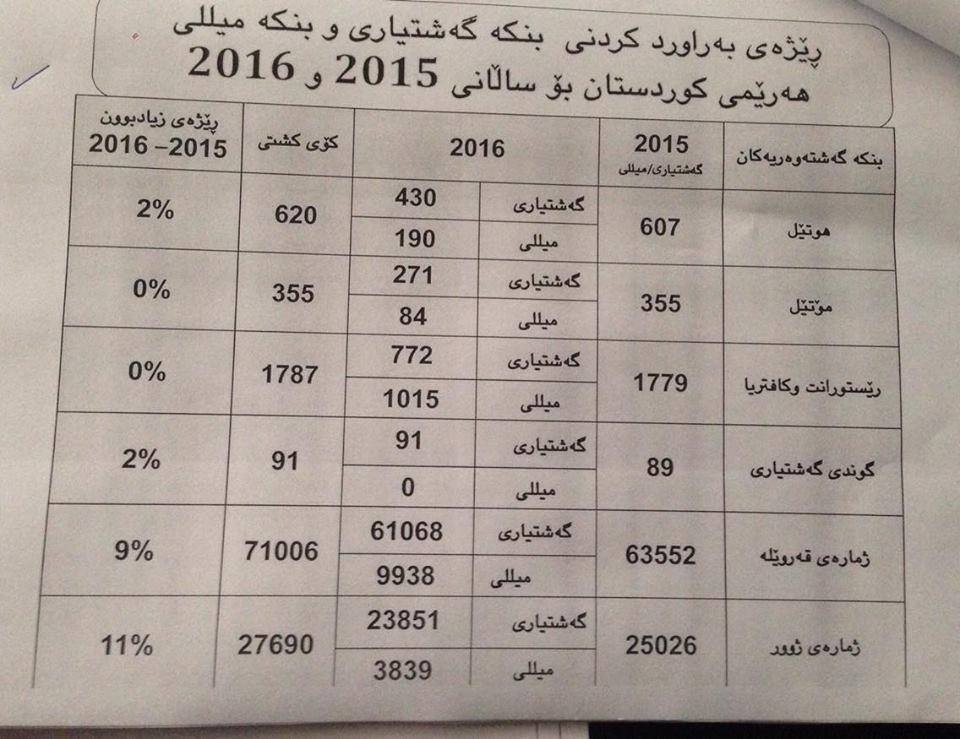 ڕێژەی بەراورد کردنی بنکە گەشتیاری و بنکە میللی
هەرێمی کوردستان بۆ ساڵانی 2015 و 2016
بنکە گەشتەوەریەکان 2015 گەشتیاری/میللی 2016 کۆی گشتی ڕێژەی زیادبوون 2015–2016
هوتێل 607 گەشتیاری 430 620 2%
میللی 190
مۆتێل 355 گەشتیاری 271 355 0%
میللی 84
رێستورانت وکافتریا 1779 گەشتیاری 772 1787 0%
میللی 1015
گوندی گەشتیاری 89 گەشتیاری 91 91 2%
میللی 0
ژمارەی قەروێلە 63552 گەشتیاری 61068 71006 9%
میللی 9938
ژمارەی ژوور 25026 گەشتیاری 23851 27690 11%
میللی 3839